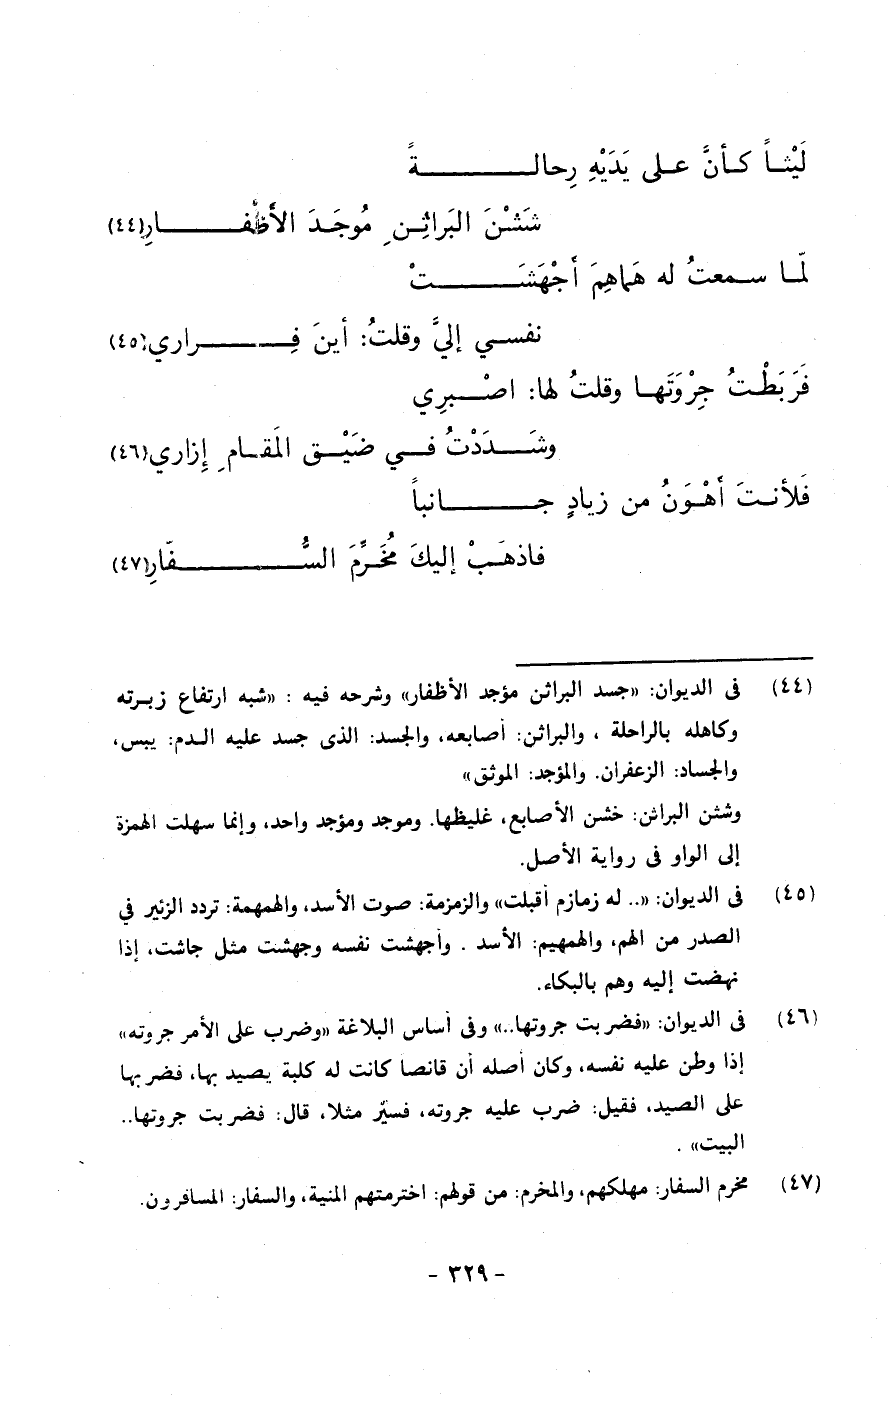 لَيْثاً كأنَّ على يَدَيْهِ رِحالـــةً
شَثْنَ البَراثِنِ مُوجَدَ الأَظْفـــارِ(٤٤)
لمّا سمعتُ له هَماهِمَ أَجْهَشَـــتْ
نفسي إليَّ وقلتُ: أينَ فِـــراري(٤٥)
فَرَبَطْتُ جِرْوَتَها وقلتُ لها: اصْبِرِي
وشَدَدْتُ في ضَيْقِ المَقامِ إِزاري(٤٦)
فَلأنتَ أهْوَنُ من زيادٍ جـــانباً
فاذهَبْ إليكَ مُخَرِّمَ السُّـــفّارِ(٤٧)
(٤٤) فى الديوان: «جسد البراثن مؤجد الأظفار» وشرحه فيه : «شبه ارتفاع زبرته
وكاهله بالراحلة ، والبراثن: أصابعه، والجسد: الذى جسد عليه الدم: يبس،
والجساد: الزعفران. والمؤجد: الموثق»
وشثن البراثن: خشن الأصابع، غليظها. وموجد ومؤجد واحد، وإنما سهلت الهمزة
إلى الواو فى رواية الأصل.
(٤٥) فى الديوان: «.. له زمازم أقبلت» والزمزمة: صوت الأسد، والهمهمة: تردد الزئير في
الصدر من الهم، والهمهيم: الأسد . وأجهشت نفسه وجهشت مثل جاشت، إذا
نهضت إليه وهم بالبكاء.
(٤٦) فى الديوان: «فضربت جروتها..» وفى أساس البلاغة «وضرب على الأمر جروته»
إذا وطن عليه نفسه، وكان أصله أن قانصا كانت له كلبة يصيد بها، فضربها
على الصيد، فقيل: ضرب عليه جروته، فسيّر مثلا، قال: فضربت جروتها..
البيت» .
(٤٧) مخرم السفار: مهلكهم، والمخرم: من قولهم: اخترمتهم المنية، والسفار: المسافرون.
- ٣٢٩ -